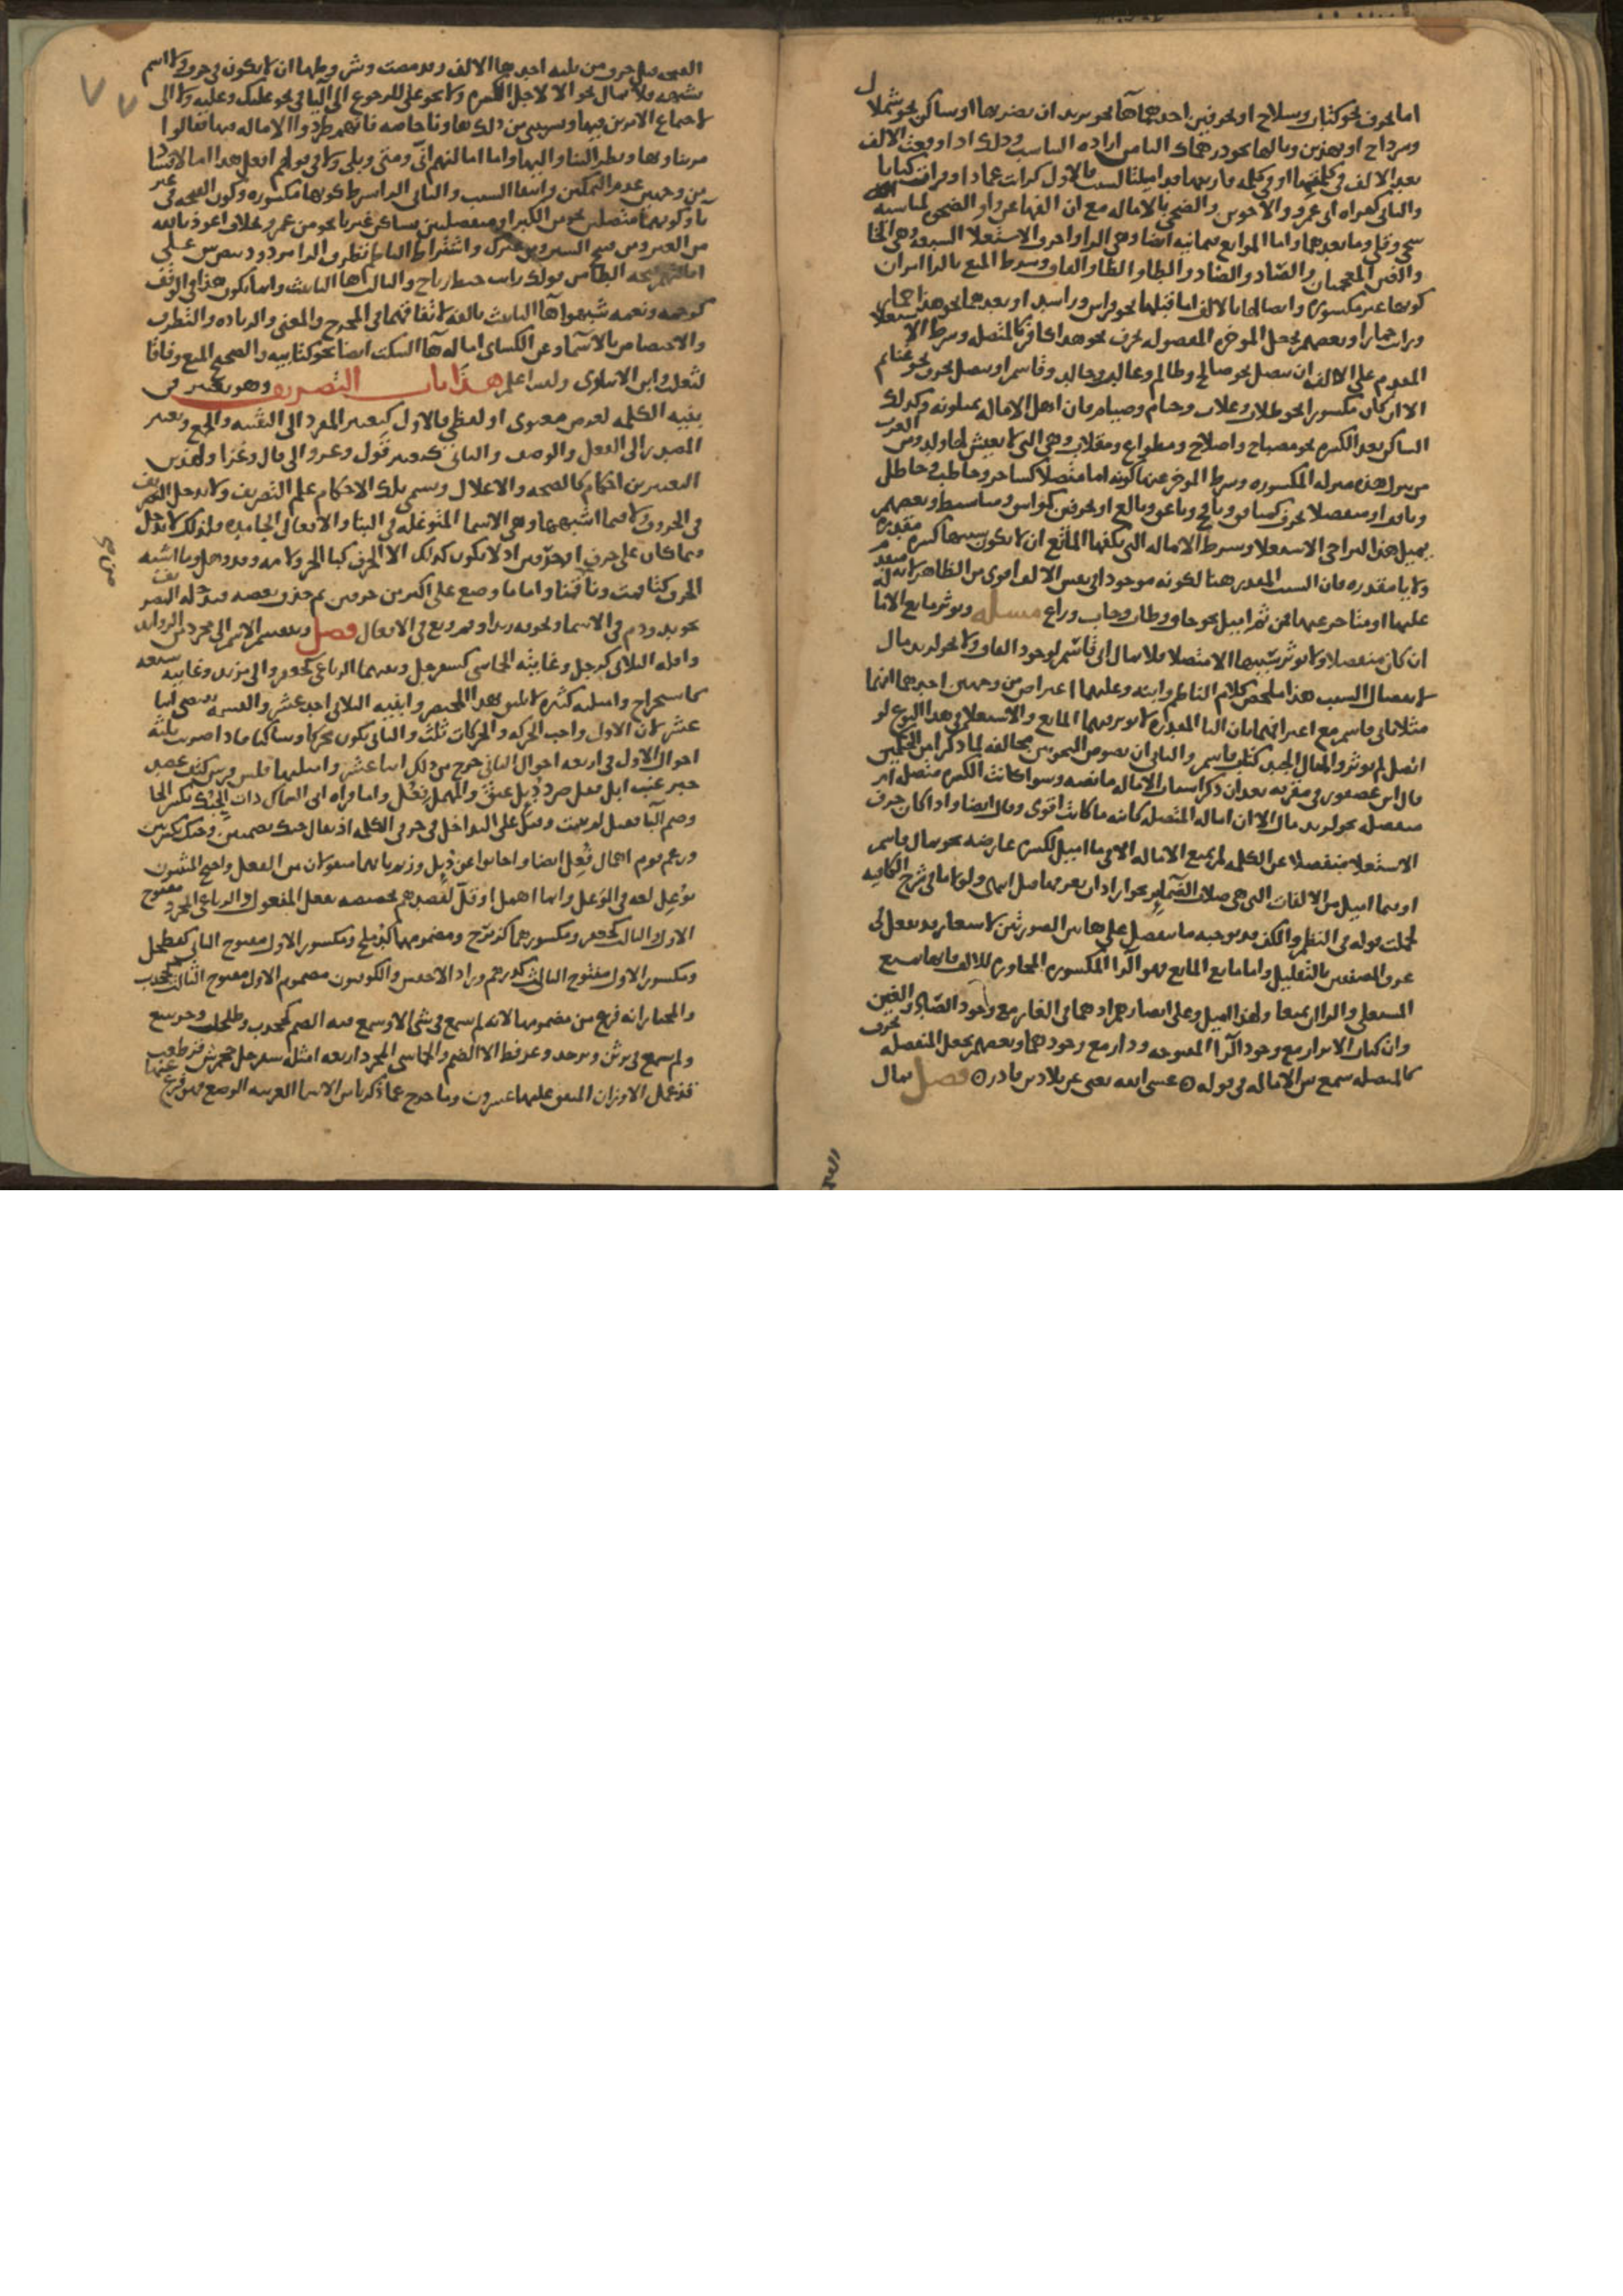 اما بحرف نحو كتاب وسلاح او بحرفين احدهما هآ نحو يريد ان يضربها او ساكن نحو شملال
وسرداح او بهذين وبالها نحو درهماك الثامن ارادة التناسب وذلك اذا وقعت الالف
بعد الالف في كلمتها او في كلمه قاربتها قد اميلتا لسبب فالاول كرايت عمادا وقرات كتابا
والثاني كقراه ابي عمرو والاخوين والضحى بالاماله مع ان الفها عن واو الضحو لمناسبه
سجى وقلى وما بعدهما واما الموانع فثمانيه ايضا وهي الرا واحرف الاستعلا السبعه وهي الخا
والغين المعجمتان والصاد والضاد والطا والظا والقاف وشرط المنع بالرا امران
كونها غير مكسوره واتصالها بالالف اما قبلها نحو فراش وراشد او بعدها نحو هذا حمار
ورايت حمارا وبعضهم يجعل الموخره المفصوله بحرف نحو هذا كافر كالمتصله وشرط الاستعلا
المتقدم على الالف ان يتصل نحو صالح وطالم وغالب وخالد وقاسم او ينفصل بحرف نحو غنايم
الا ان كان مكسورا نحو طلاب وغلاب وخيام وصيام فان اهل الاماله يميلونه وكذلك
الساكن بعد الكسره نحو مصباح واصلاح ومطواع ومقلات وهي التي لا يعيش لها ولد ومن العرب
من ينزل هذه منزله المكسوره وشرط الموخر عنها كونه اما متصلا كساخر وحاطب وحاظل
وناقد او منفصلا بحرف كنافق ونافخ وناعق وبالغ او بحرفين كمواثيق ومناشيط وبعضهم
يميل هذا لتراخي الاستعلا وشرط الاماله التي يكفها المانع ان لا يكون سببها كسره مقدره
ولا يا مقدره فان السبب المقدر هنا لكونه موجودا في نفس الالف اقوى من الظاهر لانه اما متقدم
عليها او متاخر عنها فمن ثم اميل نحو خاف وطاب وحاق وزاغ مسله ويوثر مانع الاماله
ان كان منفصلا ولا يوثر سببها الا متصلا فلا يمال اتى قاسم لوجود القاف ولا نحو لزيد مال
لانفصال السبب هذا ملخص كلام الناظم وابنه وعليهما اعتراض من وجهين احدهما انهما
مثلا باتى قاسم مع اعترافهما بان اليا المقدره لا يوثر فيها المانع والاستعلا في هذا النوع لو
اتصل لم يوثر والمثال الجيد كتاب قاسم والثاني ان نصوص النحويين مخالفه لما ذكرا من الحكمين
قال ابن عصفور في مقربه بعد ان ذكر اسباب الاماله ما نصه وسوا كانت الكسره متصله ام
منفصله نحو لزيد مال الا ان اماله المتصله كاينه ما كانت اقوى وقال ايضا واذا كان حرف
الاستعلا منفصلا عن الكلمه لم يمنع الاماله الا في ما اميل لكسره عارضه نحو بمال قاسم
او فيما اميل من الالفات التي هي صلات الضماير نحو اراد ان يعرفها قبل انتهى ولولا ما في شرح الكافيه
لحملت قوله في النظم والكف قد يوجبه ما ينفصل على هاتين الصورتين لاشعار قد يفعل في
عرف المصنفين بالتقليل واما مانع المانع فهو الرا المكسوره المجاوره للالف فانها تمنع
المستعلي والرا ان تمنعا ولهذا اميل وعلى ابصارهم واذ هما في الغار مع وجود الصاد والغين
وان كتاب الابرار مع وجود الرا المفتوحه ودار مع وجودهما وبعضهم يجعل المنفصله بحرف
كالمتصله سمع سن الاماله في قوله ه عسى الله يغني عن بلاد بن قادر ه فصل تمال
الفتحه قبل حرف من ثلثه احدها الالف وقد مضت وشرطها ان لا يكون في حرف ولا اسم
يشبهه فلا تمال نحو الا لاجل الكسره ولا نحو على للرجوع الى اليا في نحو عليك وعليه ولا الى
لاجتماع الامرين فيها ويستثنى من ذلك ها ونا خاصه فانهم طردوا الاماله فيهما فقالوا
مر بنا وبها ونظر الينا واليها واما امالتهم انى ومتى وبلى ولا في قولهم افعل هذا اما لا فشاذ
من وجهين عدم التمكن وانتفا السبب والثاني الرا بشرط كونها مكسوره وكون الفتحه في غير
يا وكونهما متصلين نحو من الكبر او منفصلين بساكن غير يا نحو من عمرو بخلاف اعوذ بالله
من الغير ومن قبح السير ومن غيرك واشتراط الناظم تطرف الرا مردود بنص س على
امالتهم فتحه الطا من قولك رايت خبط رياح والثالث ها التانيث وانما يكون هذا في الوقف
كرحمه ونعمه شبهوا هآ التانيث بالفه لاتفاقهما في المخرج والمعنى والزياده والتطرف
والاختصاص بالاسما وعن الكساي اماله هآ السكت ايضا نحو كتابيه والصحيح المنع وفاقا
لثعلب وابن الانباري وليس اعلم هذا باب التصريف وهو تغيير في
بنيه الكلمه لغرض معنوي او لفظي فالاول كتغيير المفرد الى التثنيه والجمع وتغيير
المصدر الى الفعل والوصف والثاني كتغيير قول وغزو الى قال وغزا ولهذين
التغييرين احكام كالصحه والاعلال وتسمى تلك الاحكام علم التصريف ولا يدخل التصريف
في الحروف ولا فيما اشبهها وهي الاسما المتوغله في البنا والافعال الجامده ولذلك لا يدخل
فيما كان على حرف او حرفين اذ لا يكون كذلك الا الحرف كبا الجر ولامه وقد وهل وما اشبه
الحرف كتا قمت ونا قمنا واما ما وضع على اكثر من حرفين ثم حذف بعضه فيدخله التصريف
نحو يد ودم في الاسما ونحو ق زيدا وقم وبع في الافعال فصل وينقسم الاسم الى مجرد من الزوايد
واقله الثلاثي كرجل وغايته الخماسي كسفرجل وبينهما الرباعي كجعفر والى مزيد وغايته سبعه
كاستخراج وامثلته كثيره لا يليق بهذا المختصر وابنيه الثلاثي احد عشر والقسمه تقتضي اثنا
عشر لان الاول واجب الحركه والحركات ثلث والثاني يكون محركا وساكنا فاذا ضربت ثلثه
احوال الاول في اربعه احوال الثاني خرج من ذلك اثنا عشر وامثلتها فلس فرس كتف عضد
حبر عنب ابل قفل صرد دئل عنق والمهمل فعل واما قراه ابي السمال ذات الحبك بكسر الحا
وضم البا فقيل لم يثبت وقيل على التداخل في حرفي الكلمه اذ يقال حبك بضمتين وحبك بكسرتين
وزعم قوم اهمال فعل ايضا واجابوا عن دئل وزئم بانهما منقولان من الفعل واحتج المثبتون
بوعل لغه في الوعل وانما اهمل او قل لقصدهم تخصيصه بفعل المفعول والرباعي المجرد مفتوح
الاول والثالث كجعفر ومكسورهما كزبرج ومضمومهما كدملج ومكسور الاول مفتوح الثاني كفطحل
ومكسور الاول مفتوح الثالث كدرهم وزاد الاخفش والكوفيون مضموم الاول مفتوح الثالث كجخدب
والمختار انه فرع من مضمومها لانه لم يسمع في شي الا وسمع فيه الضم كجخدب وطحلب وجرشع
ولم يسمع في برثن وبرجد وعرفط الا الضم وللخماسي المجرد اربعه امثله سفرجل جحمرش قرطعب
فذعمل الاوزان المتفق عليها عشرون وما خرج عما ذكرنا من الاسما العربيه الوضع فهو فرع عنها